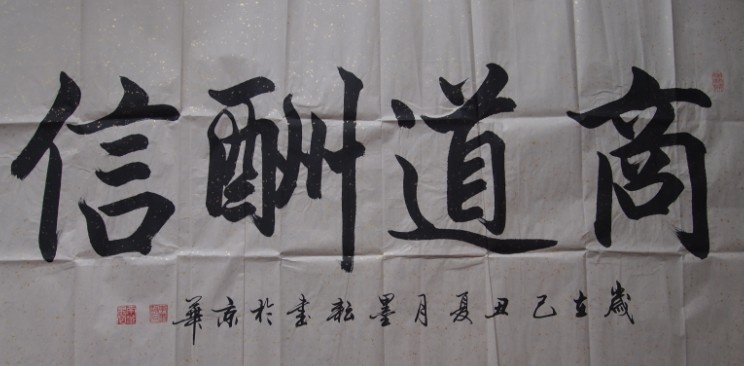 商道酬信
歲在己丑夏月墨耘書於京華